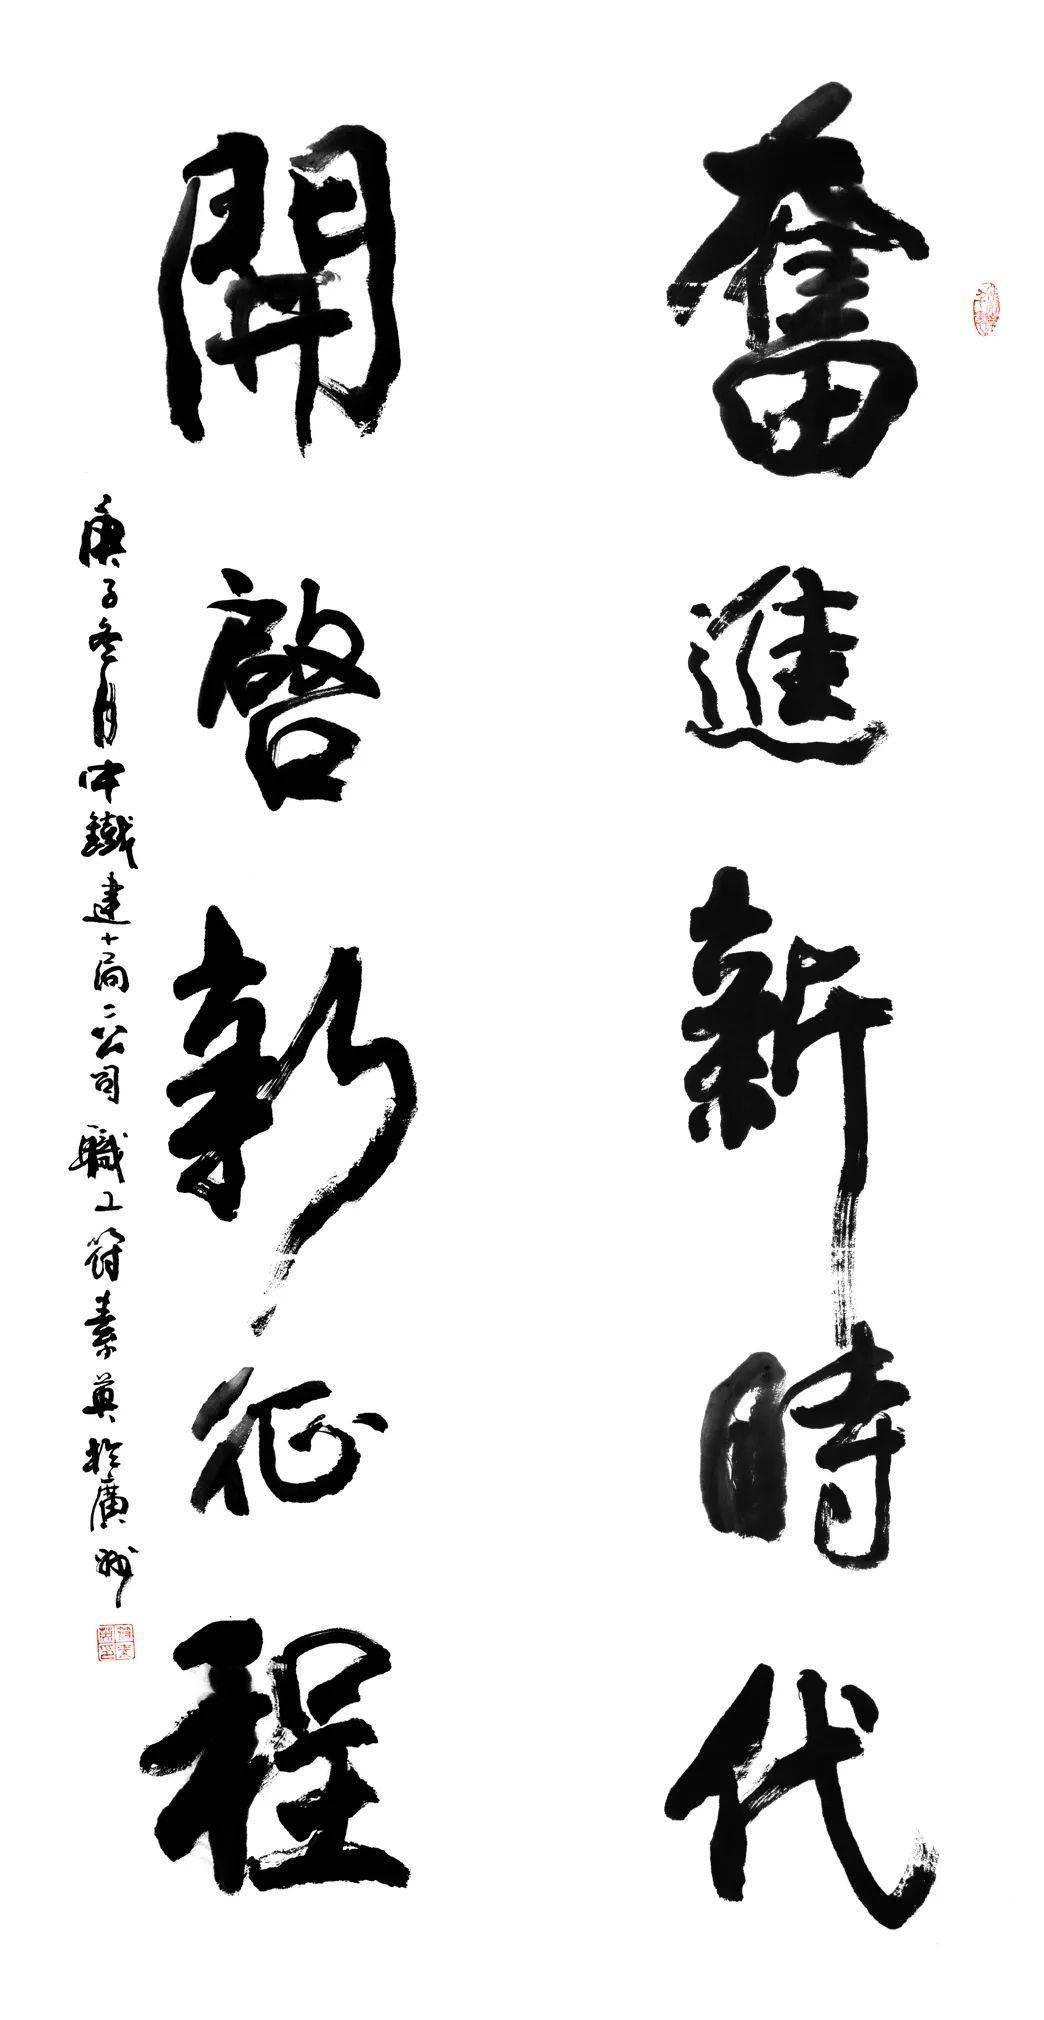 奮進新時代
開啓新征程
庚子冬月中鐵建十局二公司職工符素英於廣州